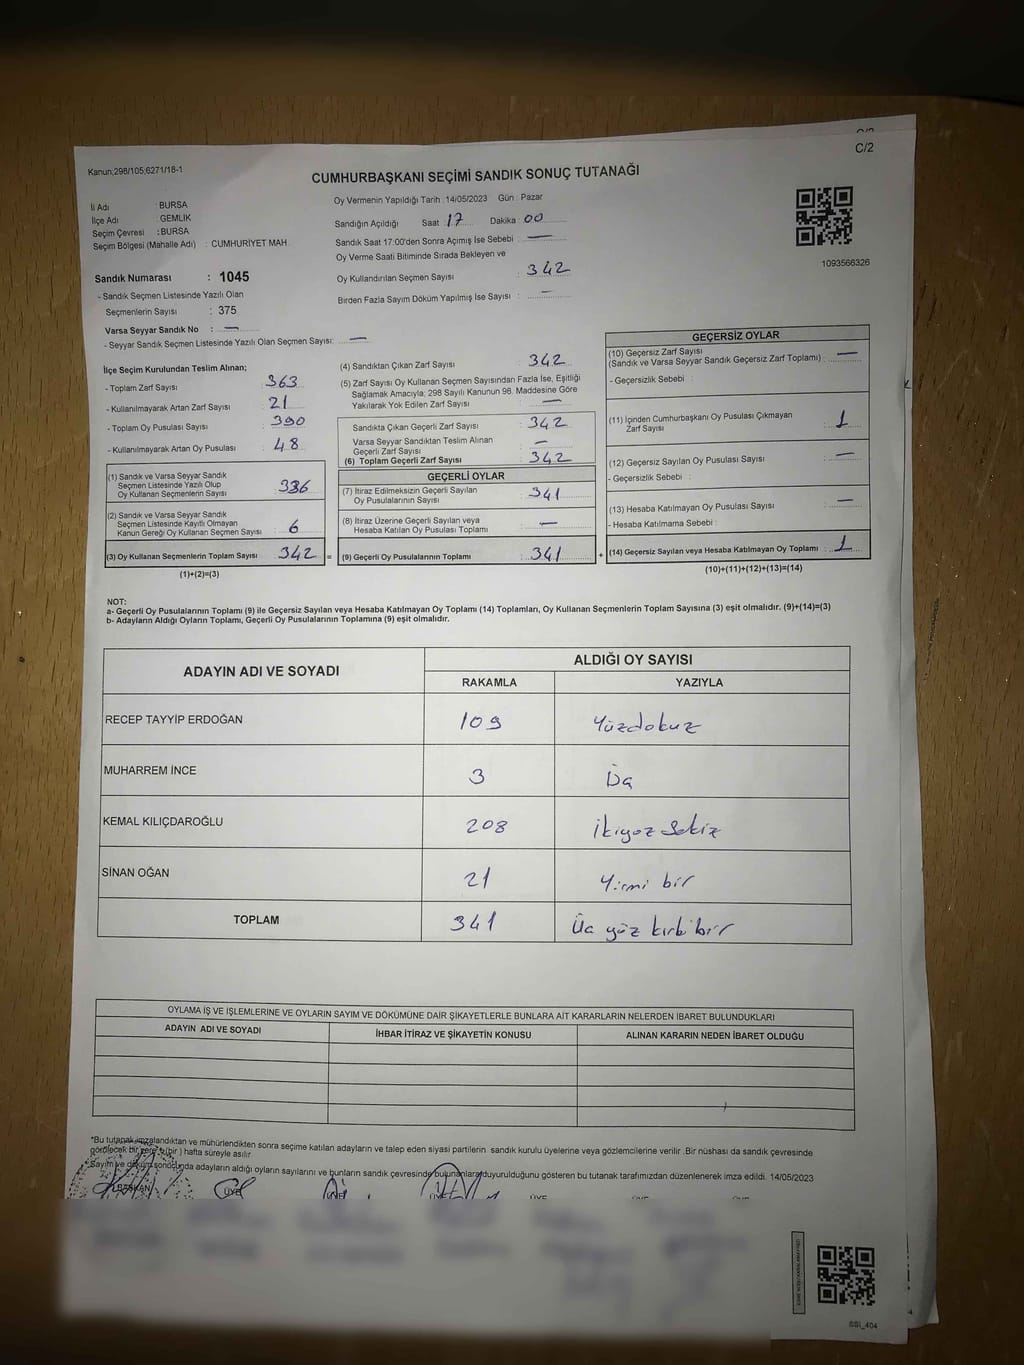 C/2
Kanun;298/105;6271/18-1
CUMHURBAŞKANI SEÇİMİ SANDIK SONUÇ TUTANAĞI
İl Adı : BURSA
İlçe Adı : GEMLİK
Seçim Çevresi : BURSA
Seçim Bölgesi (Mahalle Adı) : CUMHURİYET MAH.
Oy Vermenin Yapıldığı Tarih : 14/05/2023 Gün : Pazar
Sandığın Açıldığı Saat 17 Dakika 00
Sandık Saat 17:00'den Sonra Açımış İse Sebebi : —
Oy Verme Saati Bitiminde Sırada Bekleyen ve
Oy Kullandırılan Seçmen Sayısı : 342
Birden Fazla Sayım Döküm Yapılmış İse Sayısı : —
1093566326
Sandık Numarası : 1045
- Sandık Seçmen Listesinde Yazılı Olan
Seçmenlerin Sayısı : 375
Varsa Seyyar Sandık No : —
- Seyyar Sandık Seçmen Listesinde Yazılı Olan Seçmen Sayısı: —
İlçe Seçim Kurulundan Teslim Alınan;
- Toplam Zarf Sayısı : 363
- Kullanılmayarak Artan Zarf Sayısı : 21
- Toplam Oy Pusulası Sayısı : 390
- Kullanılmayarak Artan Oy Pusulası : 48
(1) Sandık ve Varsa Seyyar Sandık
Seçmen Listesinde Yazılı Olup
Oy Kullanan Seçmenlerin Sayısı : 336
(2) Sandık ve Varsa Seyyar Sandık
Seçmen Listesinde Kayıtlı Olmayan
Kanun Gereği Oy Kullanan Seçmen Sayısı : 6
(3) Oy Kullanan Seçmenlerin Toplam Sayısı : 342 =
(1)+(2)=(3)
(4) Sandıktan Çıkan Zarf Sayısı : 342
(5) Zarf Sayısı Oy Kullanan Seçmen Sayısından Fazla İse, Eşitliği
Sağlamak Amacıyla; 298 Sayılı Kanunun 98. Maddesine Göre
Yakılarak Yok Edilen Zarf Sayısı : —
Sandıkta Çıkan Geçerli Zarf Sayısı : 342
Varsa Seyyar Sandıktan Teslim Alınan
Geçerli Zarf Sayısı : —
(6) Toplam Geçerli Zarf Sayısı : 342
GEÇERLİ OYLAR
(7) İtiraz Edilmeksizin Geçerli Sayılan
Oy Pusulalarının Sayısı : 341
(8) İtiraz Üzerine Geçerli Sayılan veya
Hesaba Katılan Oy Pusulası Toplamı : —
(9) Geçerli Oy Pusulalarının Toplamı : 341 +
GEÇERSİZ OYLAR
(10) Geçersiz Zarf Sayısı
(Sandık ve Varsa Seyyar Sandık Geçersiz Zarf Toplamı) : —
- Geçersizlik Sebebi :
(11) İçinden Cumhurbaşkanı Oy Pusulası Çıkmayan
Zarf Sayısı : 1
(12) Geçersiz Sayılan Oy Pusulası Sayısı : —
- Geçersizlik Sebebi :
(13) Hesaba Katılmayan Oy Pusulası Sayısı : —
- Hesaba Katılmama Sebebi :
(14) Geçersiz Sayılan veya Hesaba Katılmayan Oy Toplamı : 1
(10)+(11)+(12)+(13)=(14)
NOT:
a- Geçerli Oy Pusulalarının Toplamı (9) ile Geçersiz Sayılan veya Hesaba Katılmayan Oy Toplamı (14) Toplamları, Oy Kullanan Seçmenlerin Toplam Sayısına (3) eşit olmalıdır. (9)+(14)=(3)
b- Adayların Aldığı Oyların Toplamı, Geçerli Oy Pusulalarının Toplamına (9) eşit olmalıdır.
ADAYIN ADI VE SOYADI ALDIĞI OY SAYISI
RAKAMLA YAZIYLA
RECEP TAYYİP ERDOĞAN 109 Yüzdokuz
MUHARREM İNCE 3 Üç
KEMAL KILIÇDAROĞLU 208 İkiyüz Sekiz
SİNAN OĞAN 21 Yirmi bir
TOPLAM 341 Üç yüz kırk bir
OYLAMA İŞ VE İŞLEMLERİNE VE OYLARIN SAYIM VE DÖKÜMÜNE DAİR ŞİKAYETLERLE BUNLARA AİT KARARLARIN NELERDEN İBARET BULUNDUKLARI
ADAYIN ADI VE SOYADI İHBAR İTİRAZ VE ŞİKAYETİN KONUSU ALINAN KARARIN NEDEN İBARET OLDUĞU
*Bu tutanak imzalandıktan ve mühürlendikten sonra seçime katılan adayların ve talep eden siyasi partilerin sandık kurulu üyelerine veya gözlemcilerine verilir .Bir nüshası da sandık çevresinde
görülecek bir yere (bir) hafta süreyle asılır.
*Sayım ve döküm sonucunda adayların aldığı oyların sayılarını ve bunların sandık çevresinde bulunanlara duyurulduğunu gösteren bu tutanak tarafımızdan düzenlenerek imza edildi. 14/05/2023
BAŞKAN ÜYE ÜYE ÜYE ÜYE
SSI_404